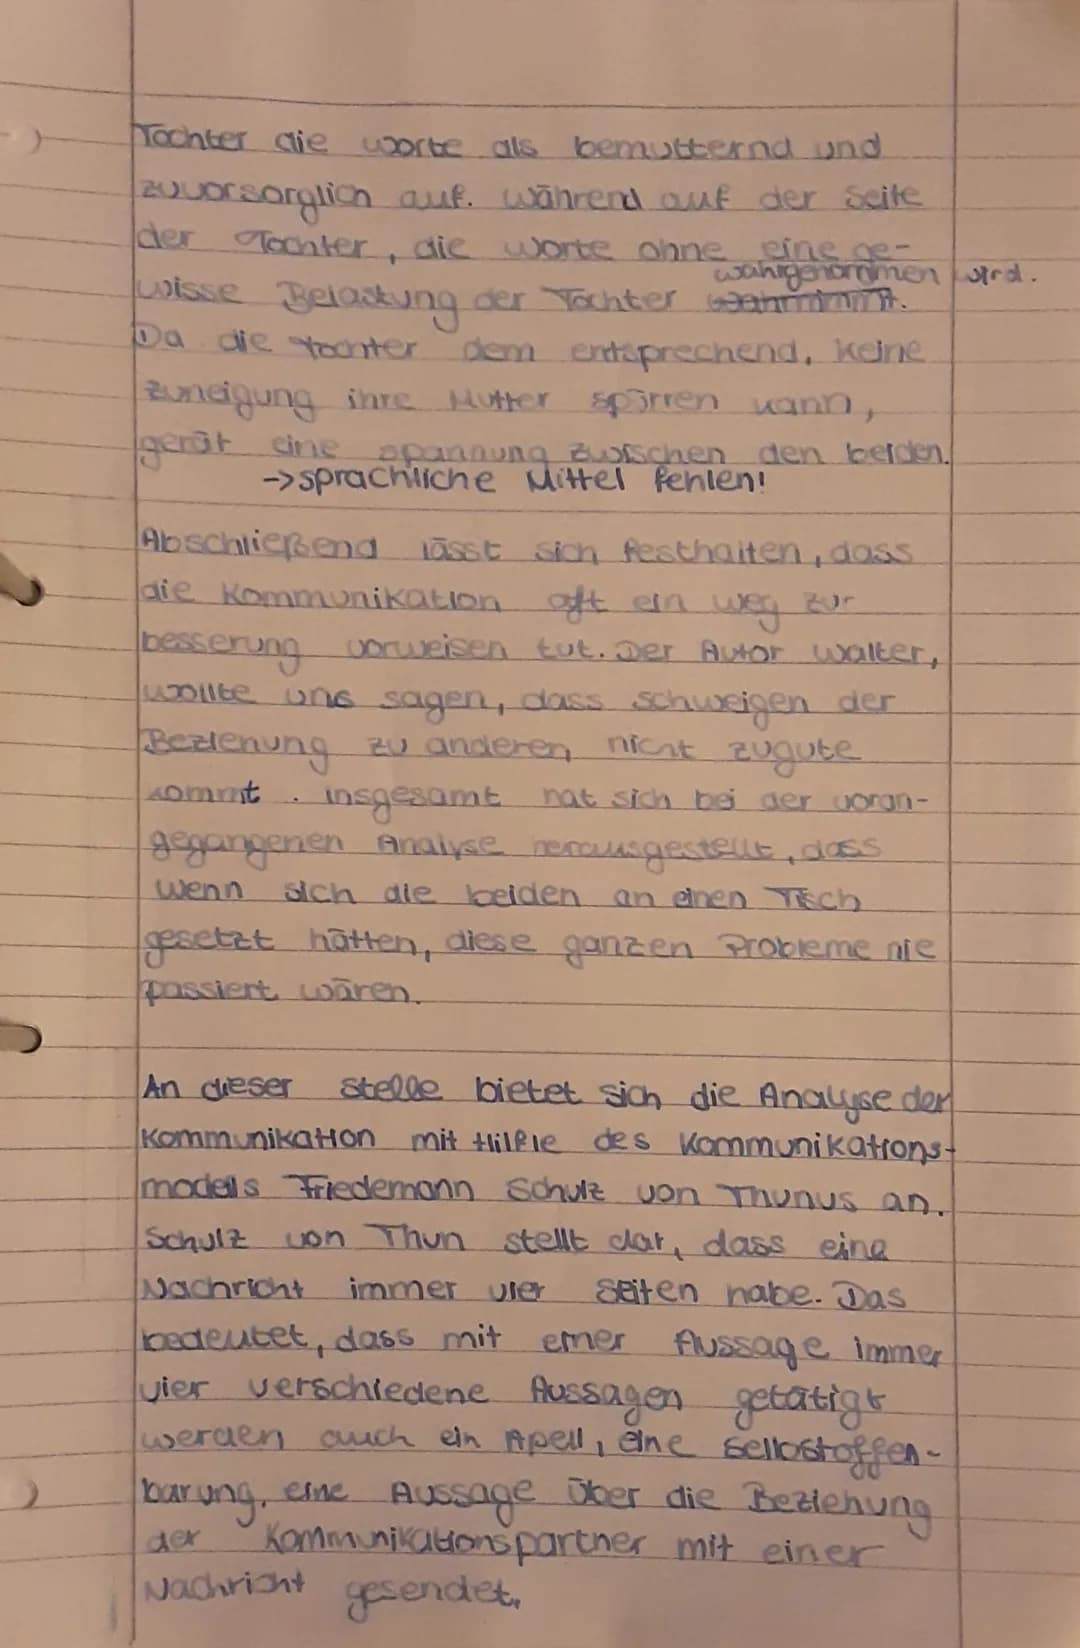 Tochter die worte als bemutternd und
zuvorsorglich auf. während auf der Seite
der Tochter, die worte ohne eine ge-
wahrgenommen wird.
wisse Belastung der Tochter wahrnimmt.
Da die tochter dem entsprechend, keine
zuneigung ihre Mutter spürren kann,
gerät eine spannung zwischen den beiden.
->sprachliche Mittel fehlen!
Abschließend lässt sich festhalten, dass
die Kommunikation oft ein weg zur
besserung vorweisen tut. Der Autor walter,
wollte uns sagen, dass schweigen der
Beziehung zu anderen nicht zugute
kommt. insgesamt hat sich bei der voran-
gegangenen Analyse herausgestellt, dass
wenn sich die beiden an einen Tisch
gesetzt hätten, diese ganzen Probleme nie
passiert wären.
An dieser stelle bietet sich die Analyse der
Kommunikation mit Hilfe des Kommunikations-
modells Friedemann Schulz von Thunus an.
Schulz von Thun stellt dar, dass eine
Nachricht immer vier Seiten habe. Das
bedeutet, dass mit einer Aussage immer
vier verschiedene Aussagen getätigt
werden auch ein Apell, eine Selbstoffen-
barung, eine Aussage über die Beziehung
der Kommunikationspartner mit einer
Nachricht gesendet.